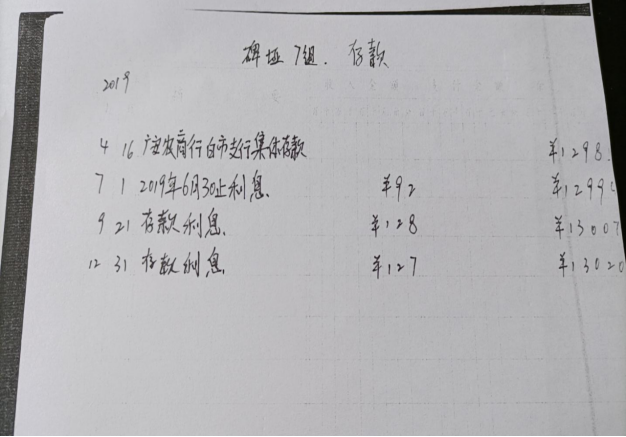 碑垭7组. 存款
2019
4 16 广安农商行白市支行集体存款 ¥1298
7 1 2019年6月30止利息. ¥92 ¥1299
9 21 存款利息. ¥128 ¥13007
12 31 存款利息. ¥127 ¥13020